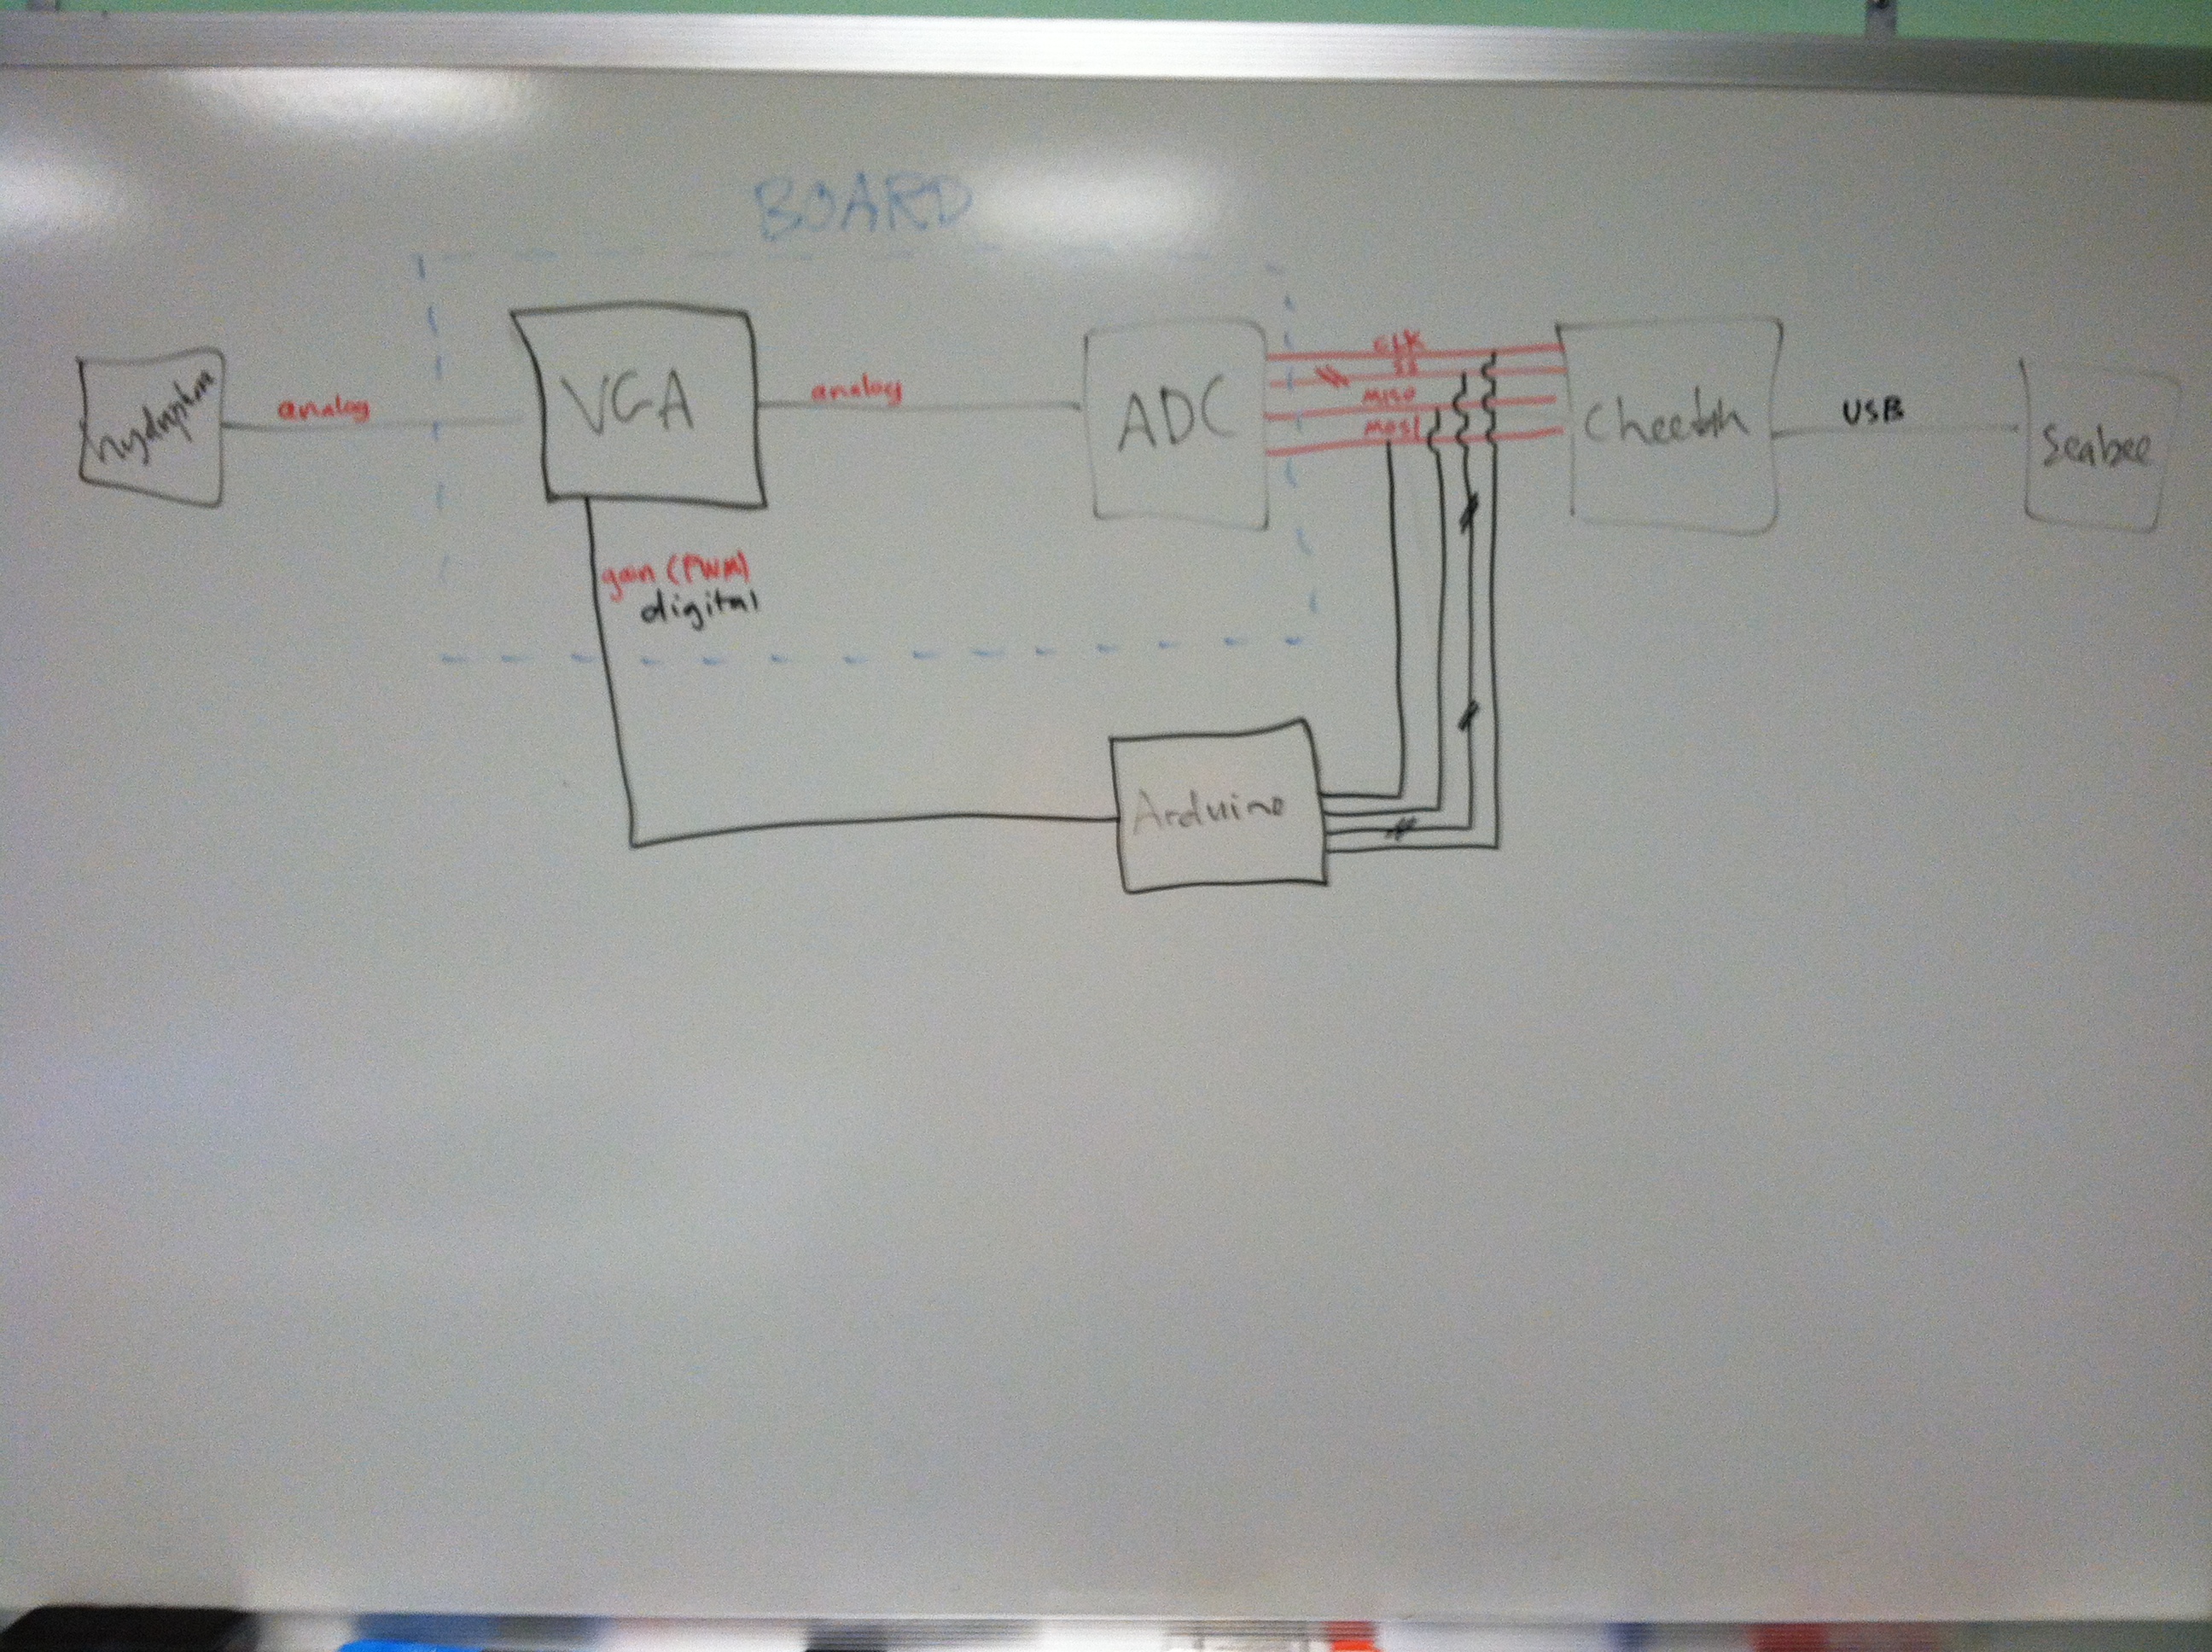 BOARD
hydrophone
analog
VGA
analog
ADC
CLK
SS
MISO
MOSI
Cheetah
USB
Seabee
gain (PWM)
digital
Arduino